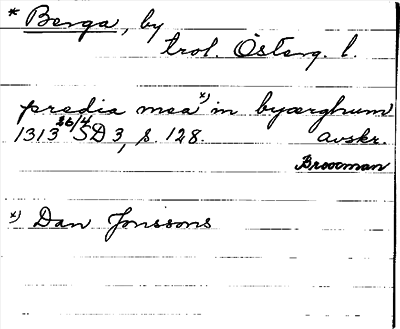 * Berga, by
trol. Österg. l.
predia mea x) in byærghum
1313 26/4 SD 3, s. 128. avskr.
Broocman
x) Dan Jonssons